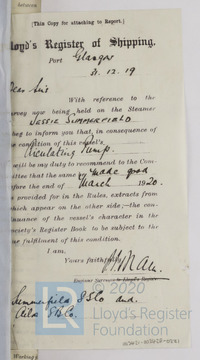 (This Copy for attaching to Report.)
Lloyd's Register of Shipping.
Port Glasgow
31.12.19
Dear Sirs
With reference to the
survey now being held on the Steamer
"Jessie Summerfield"
beg to inform you that, in consequence of
the condition of this vessel's
Circulating Pump.
will be my duty to recommend to the Com-
mittee that the same be made good
before the end of March 1920.
as provided for in the Rules, extracts from
which appear on the other side;—the con-
tinuance of the vessel's character in the
Society's Register Book to be subject to the
due fulfilment of this condition.
I am,
Yours faithfully,
Engineer Surveyor to Lloyd's Register
Summerfield & Co and
© 2020
Lloyd's Register
Foundation